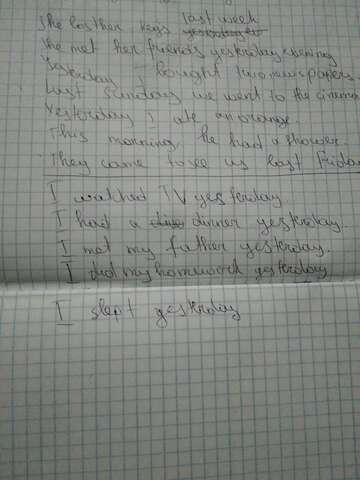 She lost her keys last week
She met her friends yesterday evening
Yesterday I bought two newspapers
Last Sunday we went to the cinema
Yesterday I ate an orange.
This morning, he had a shower.
They came to see us last Friday
I watched TV yesterday
I had a dinner yesterday.
I met my father yesterday.
I did my homework yesterday
I slept yesterday